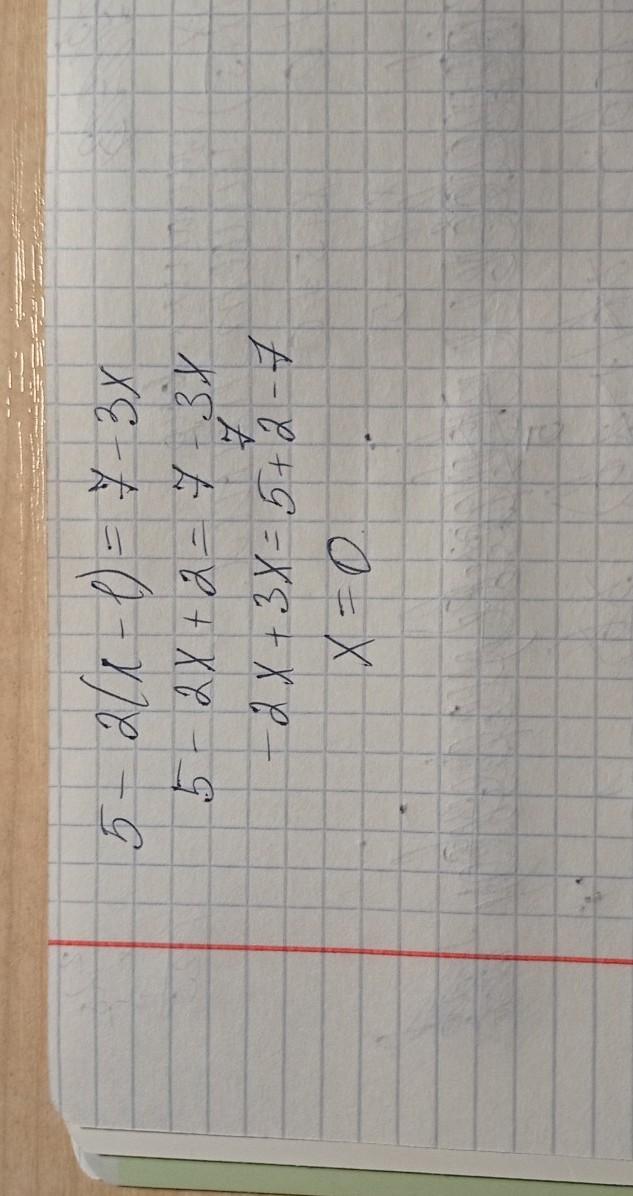 5 - 2(x - 1) = 7 - 3x
5 - 2x + 2 = 7 - 3x
7
-2x + 3x = 5 + 2 - 7
x = 0